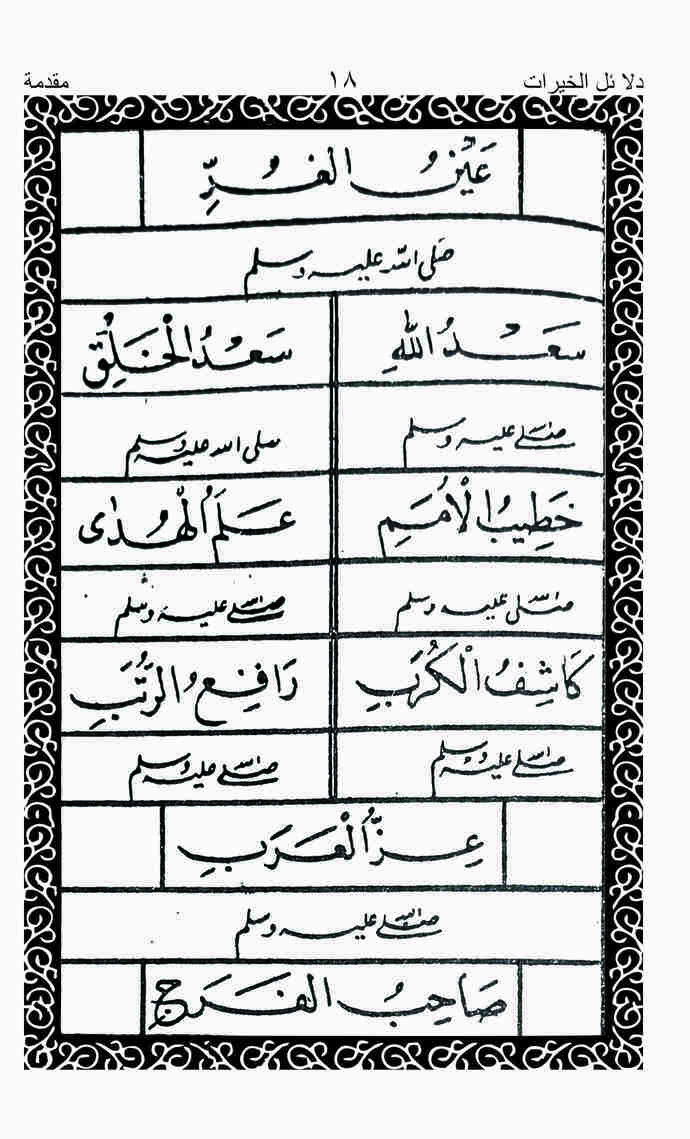 دلائل الخيرات ١٨ مقدمة
عَيْنُ الْغُرِّ
صَلى الله عليه وسلم
سَعْدُ اللهِ سَعْدُ الْخَلْقِ
صلى الله عليه وسلم صلى الله عليه وسلم
خَطِيبُ الْأُمَمِ عَلَمُ الْهُدٰى
صلى الله عليه وسلم صلى الله عليه وسلم
كَاشِفُ الْكُرَبِ رَافِعُ الرُّتَبِ
صلى الله عليه وسلم صلى الله عليه وسلم
عِزُّ الْعَرَبِ
صلى الله عليه وسلم
صَاحِبُ الْفَرَجِ